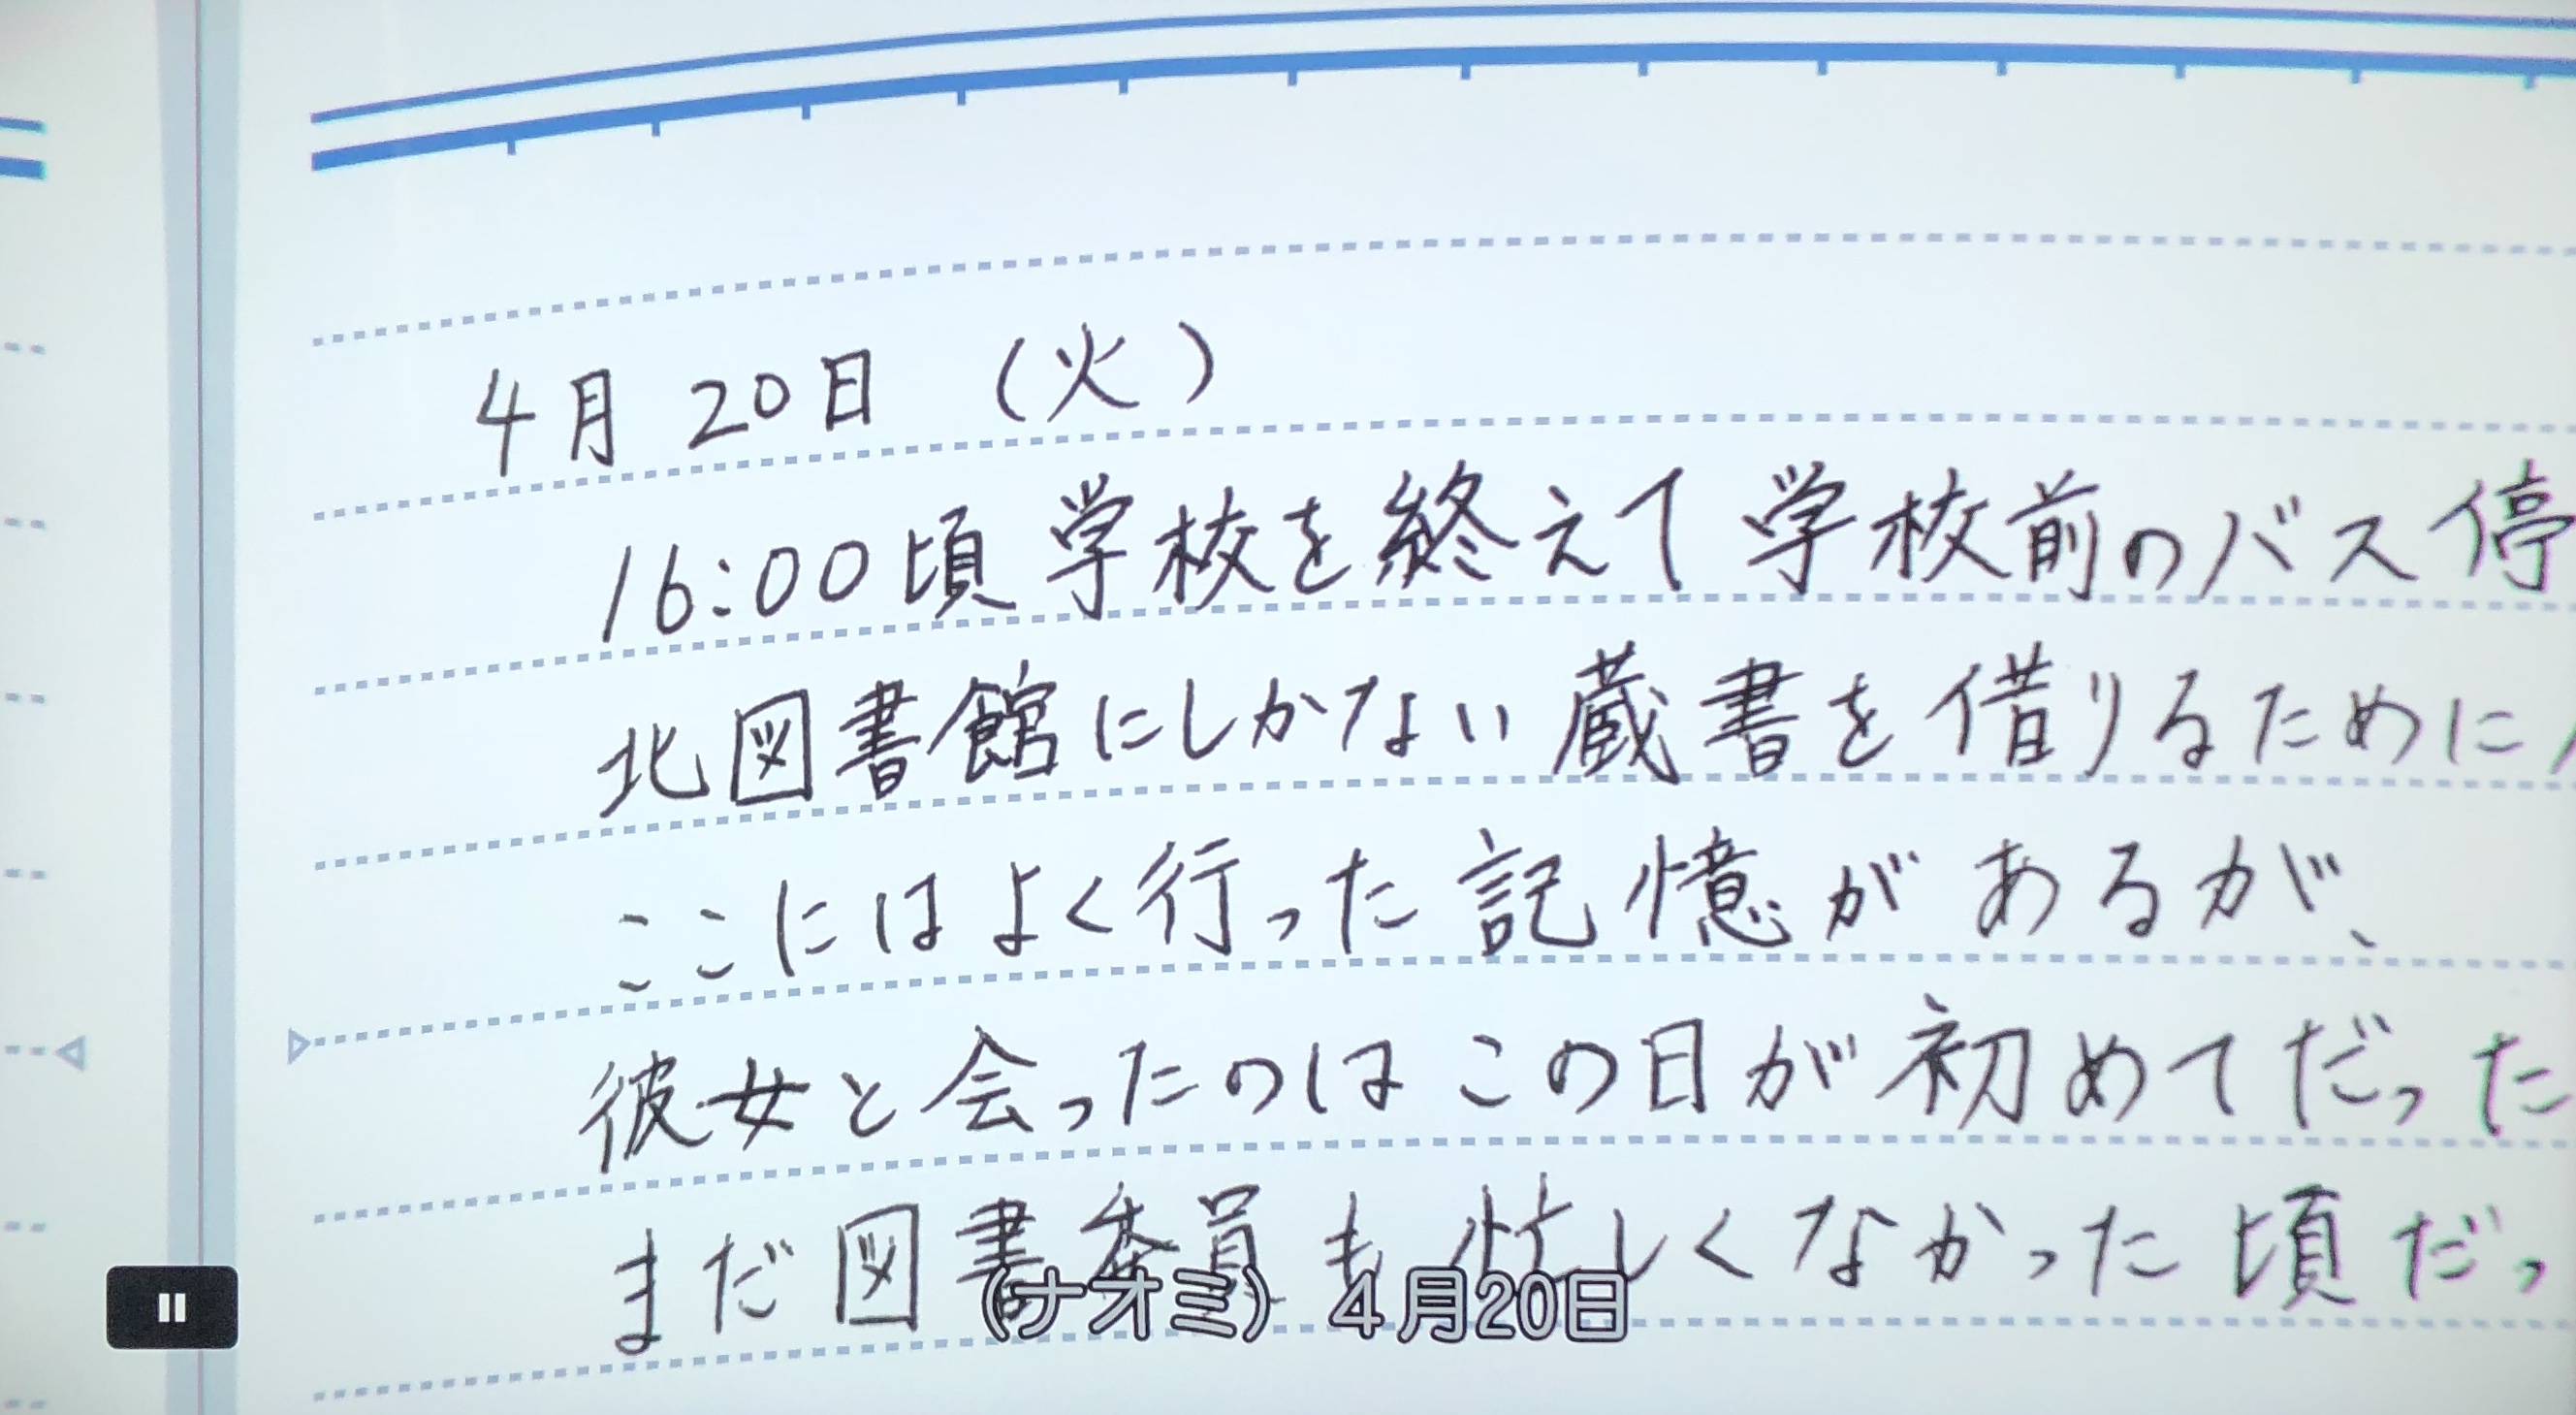 4月20日 (火)
16:00頃 学校を終えて学校前のバス停
北図書館にしかない蔵書を借りるために
ここにはよく行った記憶があるが、
彼女と会ったのはこの日が初めてだった
まだ図書委員も忙しくなかった頃だっ
(ナオミ) 4月20日